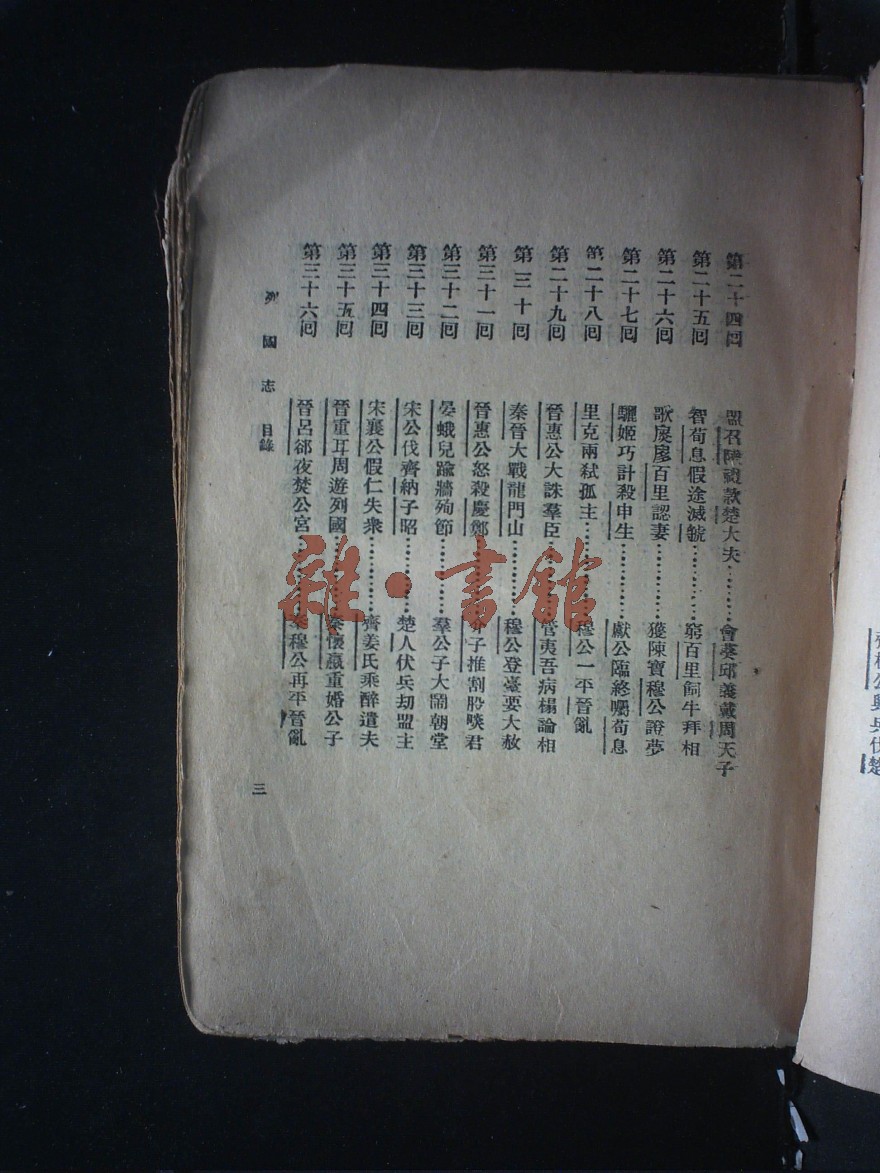 第二十四回 盟召陵禮款楚大夫………會葵邱義戴周天子
第二十五回 智荀息假途滅虢………窮百里飼牛拜相
第二十六回 歌扊扅百里認妻………獲陳寶穆公證夢
第二十七回 驪姬巧計殺申生………獻公臨終囑荀息
第二十八回 里克兩弑孤主………穆公一平晉亂
第二十九回 晉惠公大誅羣臣………管夷吾病榻論相
第三十回 秦晉大戰龍門山………穆公登臺要大赦
第三十一回 晉惠公怒殺慶鄭………介子推割股啖君
第三十二回 晏蛾兒踰牆殉節………羣公子大鬧朝堂
第三十三回 宋公伐齊納子昭………楚人伏兵劫盟主
第三十四回 宋襄公假仁失衆………齊姜氏乘醉遣夫
第三十五回 晉重耳周遊列國………秦懷嬴重婚公子
第三十六回 晉呂郤夜焚公宮………秦穆公再平晉亂
列國志 目錄
三
雜·書館